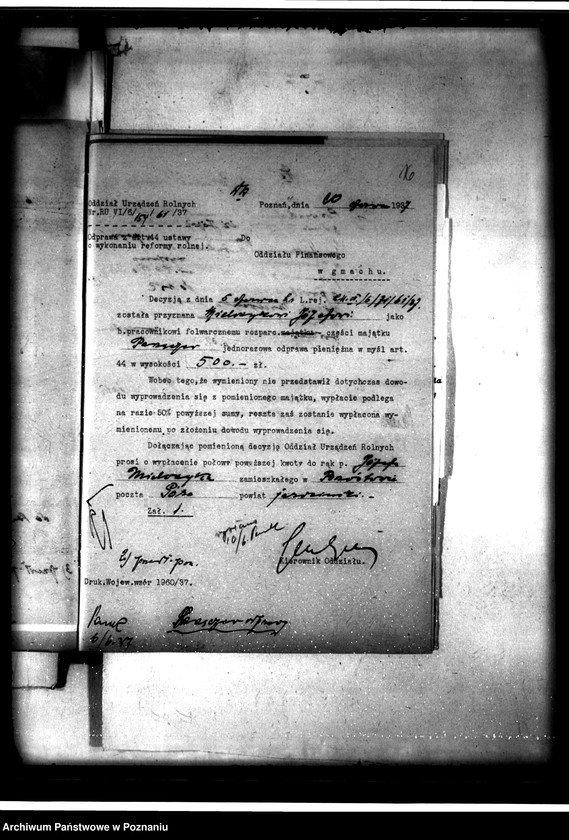 Oddział Urządzeń Rolnych
Nr.RU VI/6/ 154/ 61 /37
Poznań, dnia 10 czerwca 1937
Odprawa z art.44 ustawy
o wykonaniu reformy rolnej.
Do
Oddziału Finansowego
w gmachu.
Decyzją z dnia 5 czerwca b.r. L.rej.
została przyznana Mielczykowi Józefowi jako
b.pracownikowi folwarcznemu rozparc. majątku części majątku
jednorazowa odprawa pieniężna w myśl art.
44 w wysokości 500.- zł.
Wobec tego, że wymieniony nie przedstawił dotychczas dowo-
du wyprowadzenia się z pomienionego majątku, wypłacie podlega
na razie 50% powyższej sumy, reszta zaś zostanie wypłacona wy-
mienionemu, po złożeniu dowodu wyprowadzenia się.
Dołączając pomienioną decyzję Oddział Urządzeń Rolnych
prosi o wypłacenie połowy powyższej kwoty do rąk p. Józefa
Mielczyka zamieszkałego w
poczta powiat jarociński.-
Zał. 1.
Kierownik Oddziału.
Druk.Wojew.wzór 1960/37.
Archiwum Państwowe w Poznaniu